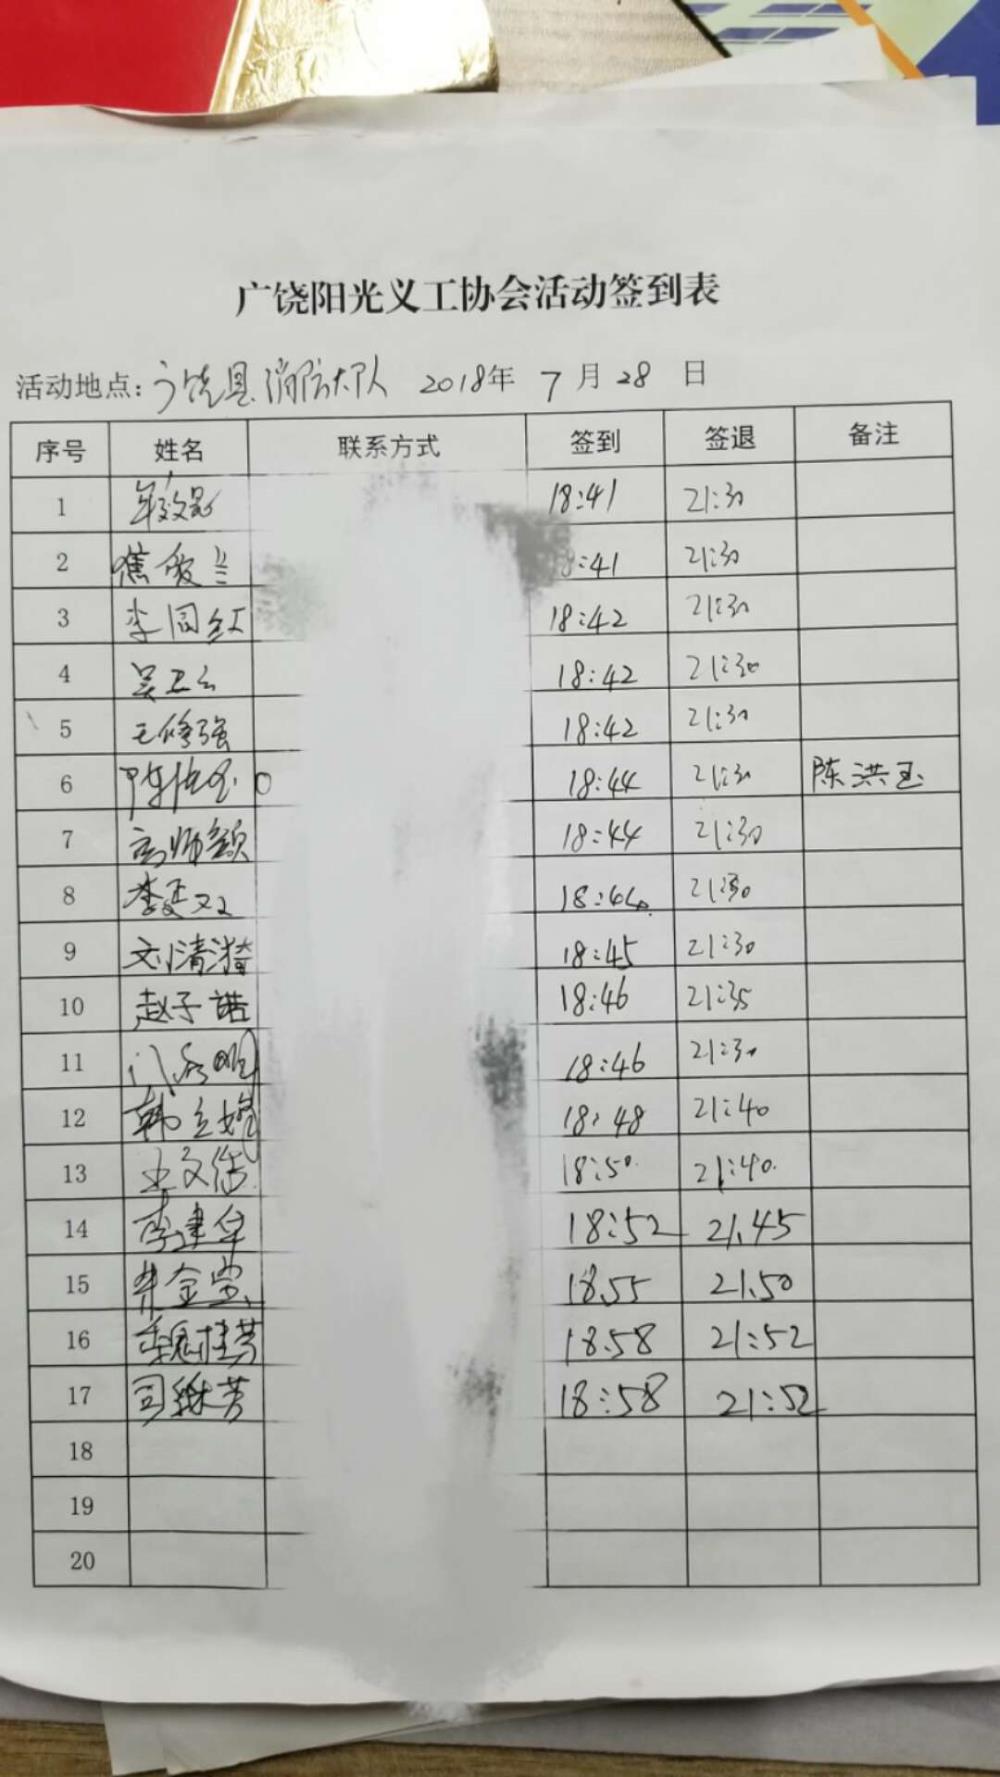 广饶阳光义工协会活动签到表
活动地点：广饶县消防大队 2018年 7 月 28 日
序号 姓名 联系方式 签到 签退 备注
1 18:41 21:30
2 焦爱兰 :41 21:30
3 李同红 18:42 21:30
4 吴卫云 18:42 21:30
5 王修强 18:42 21:30
6 陈洪玉 18:44 21:30 陈洪玉
7 高师颖 18:44 21:30
8 18:44 21:30
9 刘清漪 18:45 21:30
10 赵子诺 18:46 21:35
11 18:46 21:30
12 韩立婷 18:48 21:40
13 18:50 21:40
14 李建华 18:52 21.45
15 18.55 21.50
16 魏桂芳 18.58 21:52
17 司继芳 18:58 21:52
18
19
20